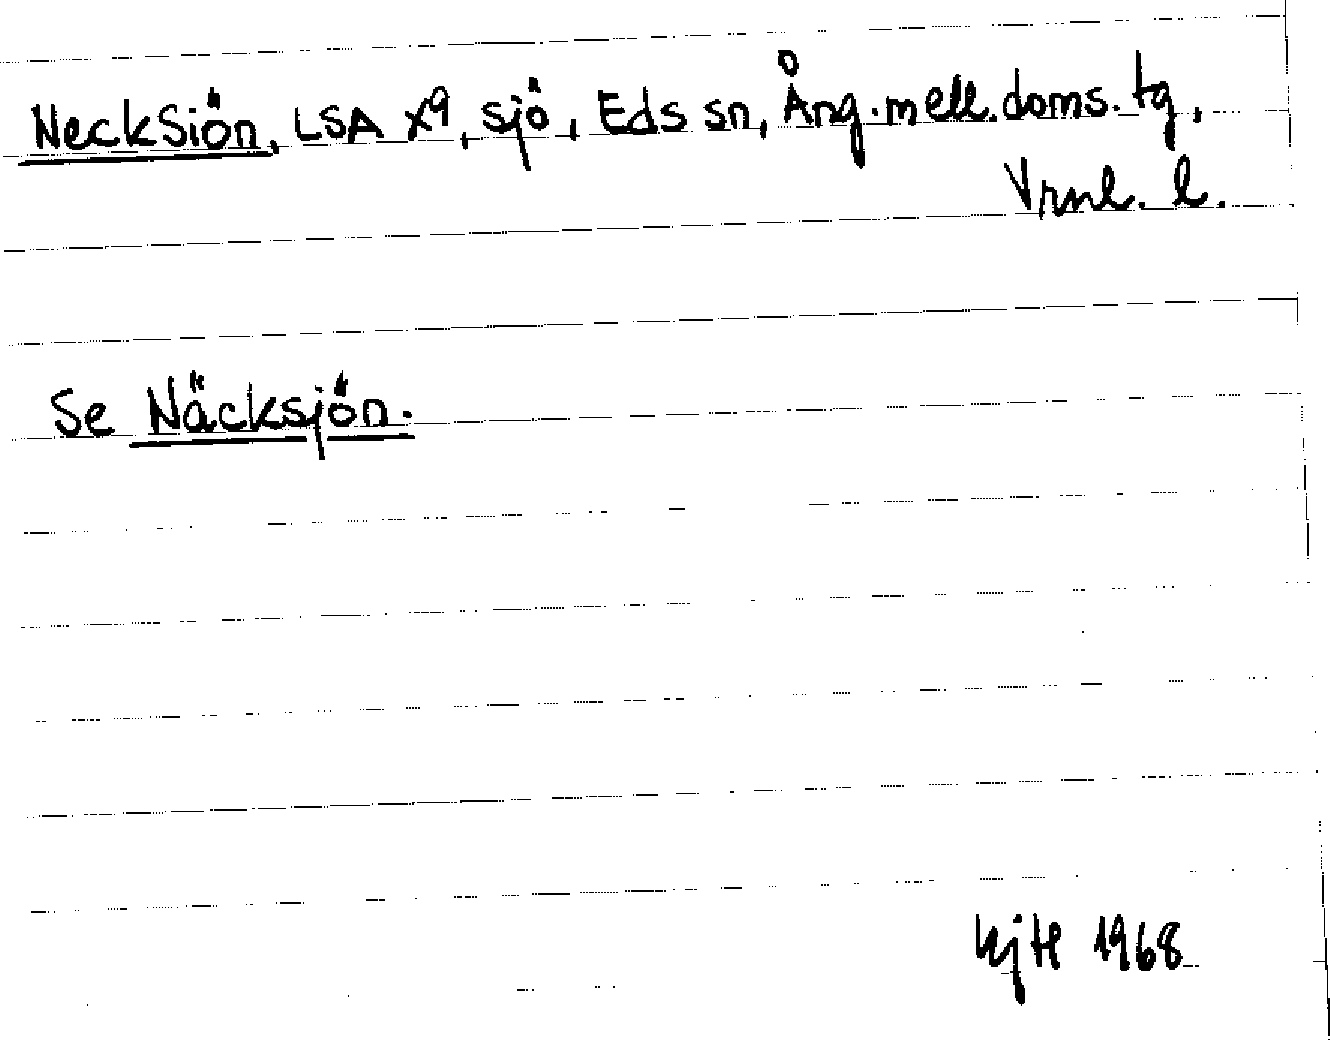 NeckSiön, LSA X9, sjö, Eds sn, Ång. mell. doms. tg,
Vrml. l.
Se Näcksjön.
1968